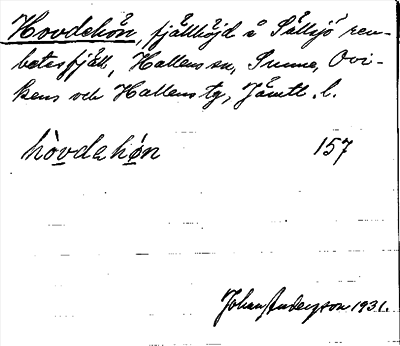 Hovdehån, fjällhöjd å Sållsjö ren-
betesfjäll, Hallens sn, Sunne, Ovi-
kens och Hallens tg, Jämtl. l.
hòvdehøn 157
Johan Anderzson 1931.